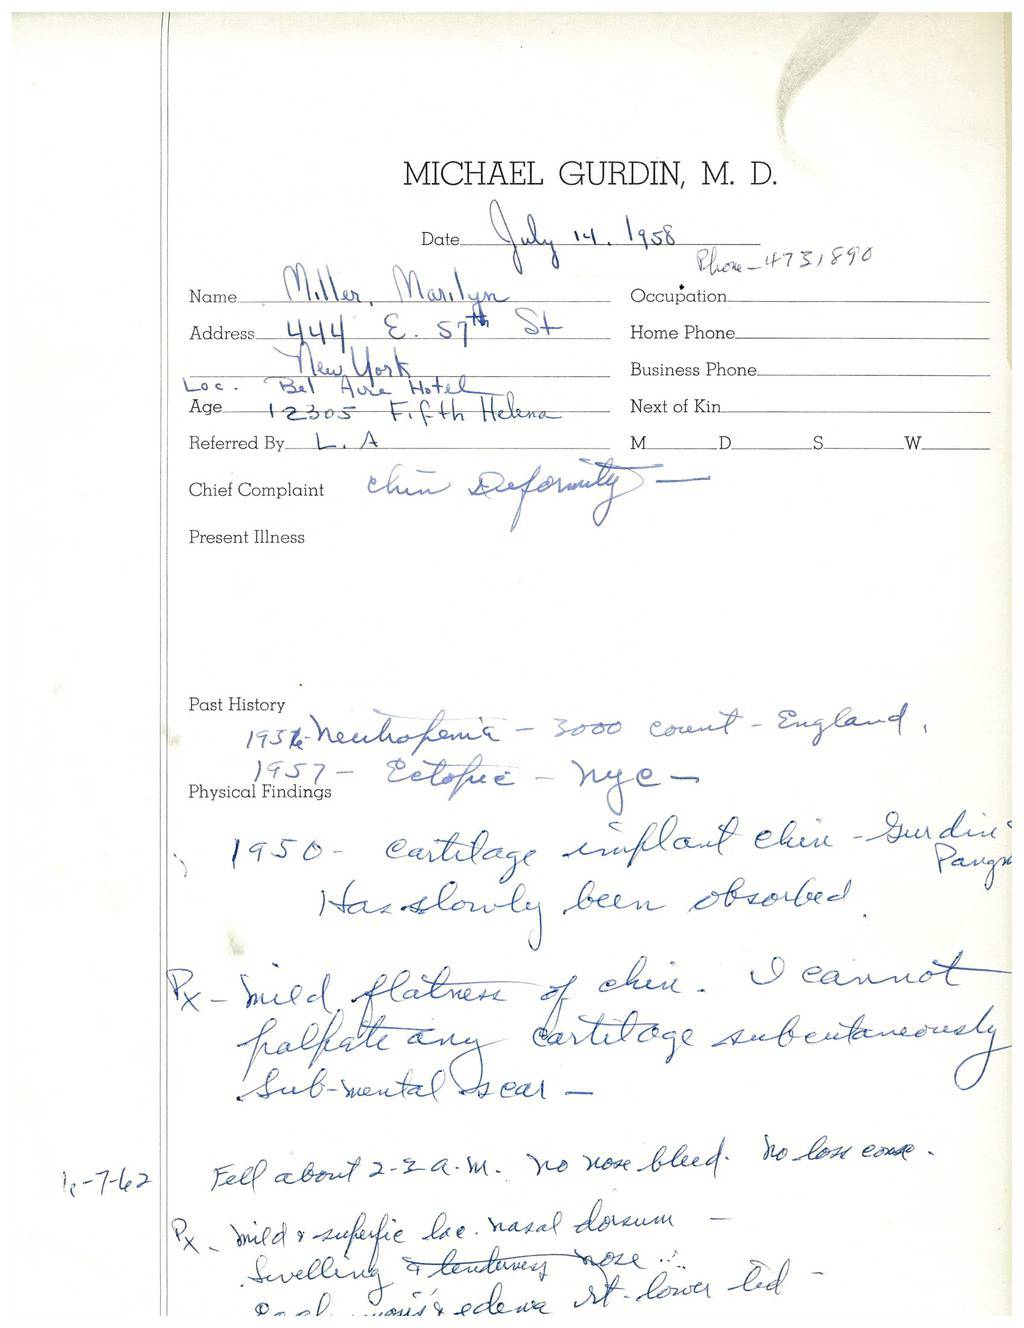 MICHAEL GURDIN, M. D.
Date July 14, 1958
Phone - 4731890
Name Miller, Marilyn
Occupation
Address 444 E. 57th St
Home Phone
New York
Business Phone
Loc. Bel Aire Hotel
Age 12305 Fifth Helena
Next of Kin
Referred By L. A
M D S W
Chief Complaint chin Deformity —
Present Illness
Past History
1956 - Neutropenia - 3000 count - England.
1957 - Ectopic - NYC -
Physical Findings
1950 - cartilage implant chin - Gurdin
Has slowly been absorbed.
Px - Mild flatness of chin. I cannot
palpate any cartilage subcutaneously
Sub-mental scar -
6-7-62 Fell about 2-3 a.m. No nose bleed. No loss consc.
Px - Mild & superfic lac. nasal dorsum -
Swelling & tenderness nose
& edema rt. lower lid -